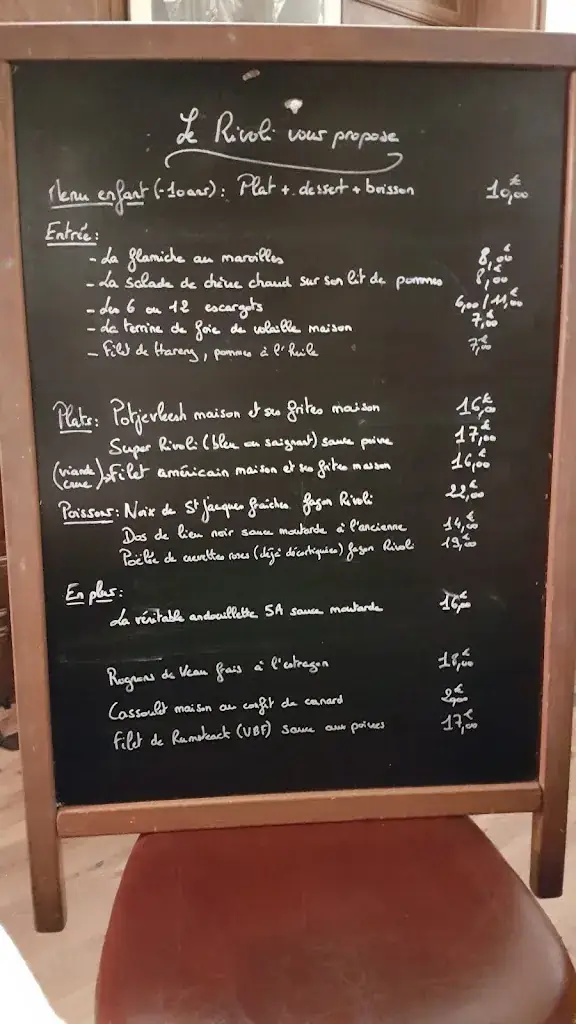 Le Rivoli vous propose
Menu enfant (-10ans) : Plat + dessert + boisson 10,00€
Entrée :
- La flamiche au maroilles 8,00€
- La salade de chèvre chaud sur son lit de pommes 8,00€
- Les 6 ou 12 escargots 6,00/11,00€
- La terrine de foie de volaille maison 7,00€
- Filet de Hareng, pommes à l'huile 7,00€
Plats : Potjevleesh maison et ses frites maison 16,00€
Super Rivoli (bleu ou saignant) sauce poivre 17,00€
(viande crue) Filet américain maison et ses frites maison 16,00€
Poissons : Noix de St Jacques fraîches façon Rivoli 22,00€
Dos de lieu noir sauce moutarde à l'ancienne 14,00€
Poêlée de crevettes roses (déjà décortiquées) façon Rivoli 19,00€
En plus :
La véritable andouillette 5A sauce moutarde 16,00€
Rognons de Veau frais à l'estragon 18,00€
Cassoulet maison au confit de canard
Filet de Rumsteack (VBF) sauce aux poivres 17,00€